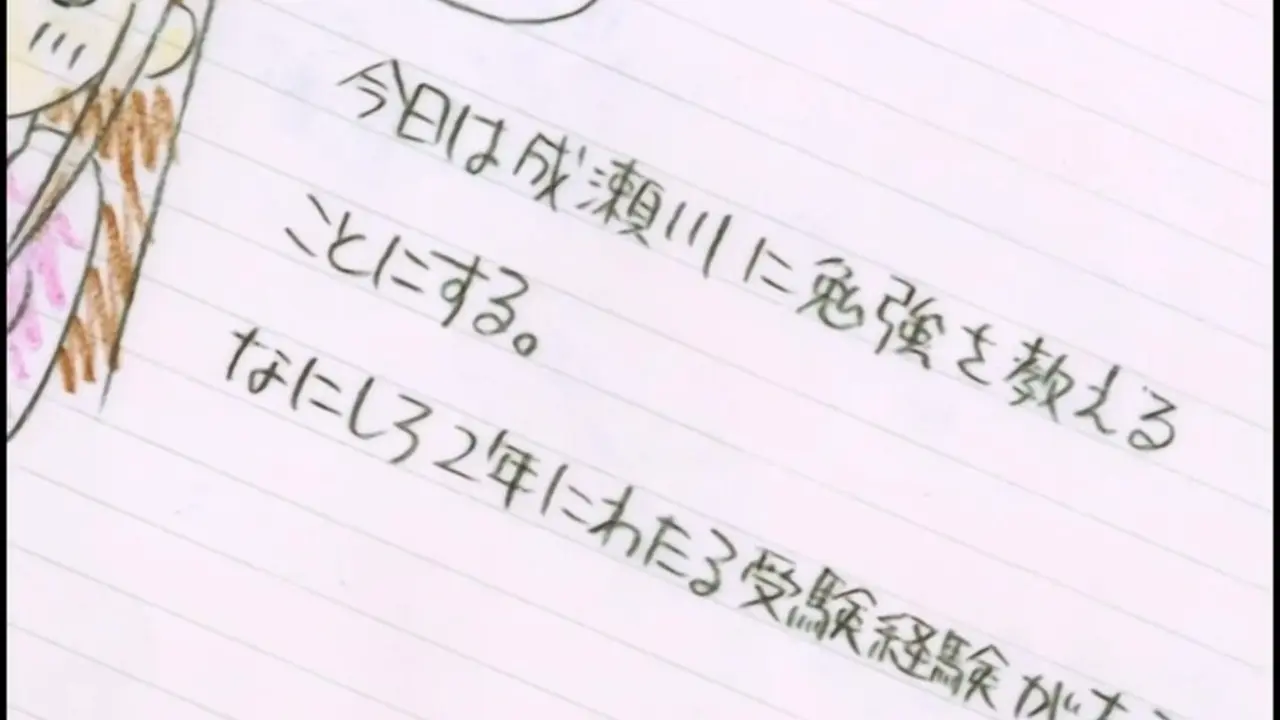 今日は成瀬川に勉強を教える
ことにする。
なにしろ2年にわたる受験経験が